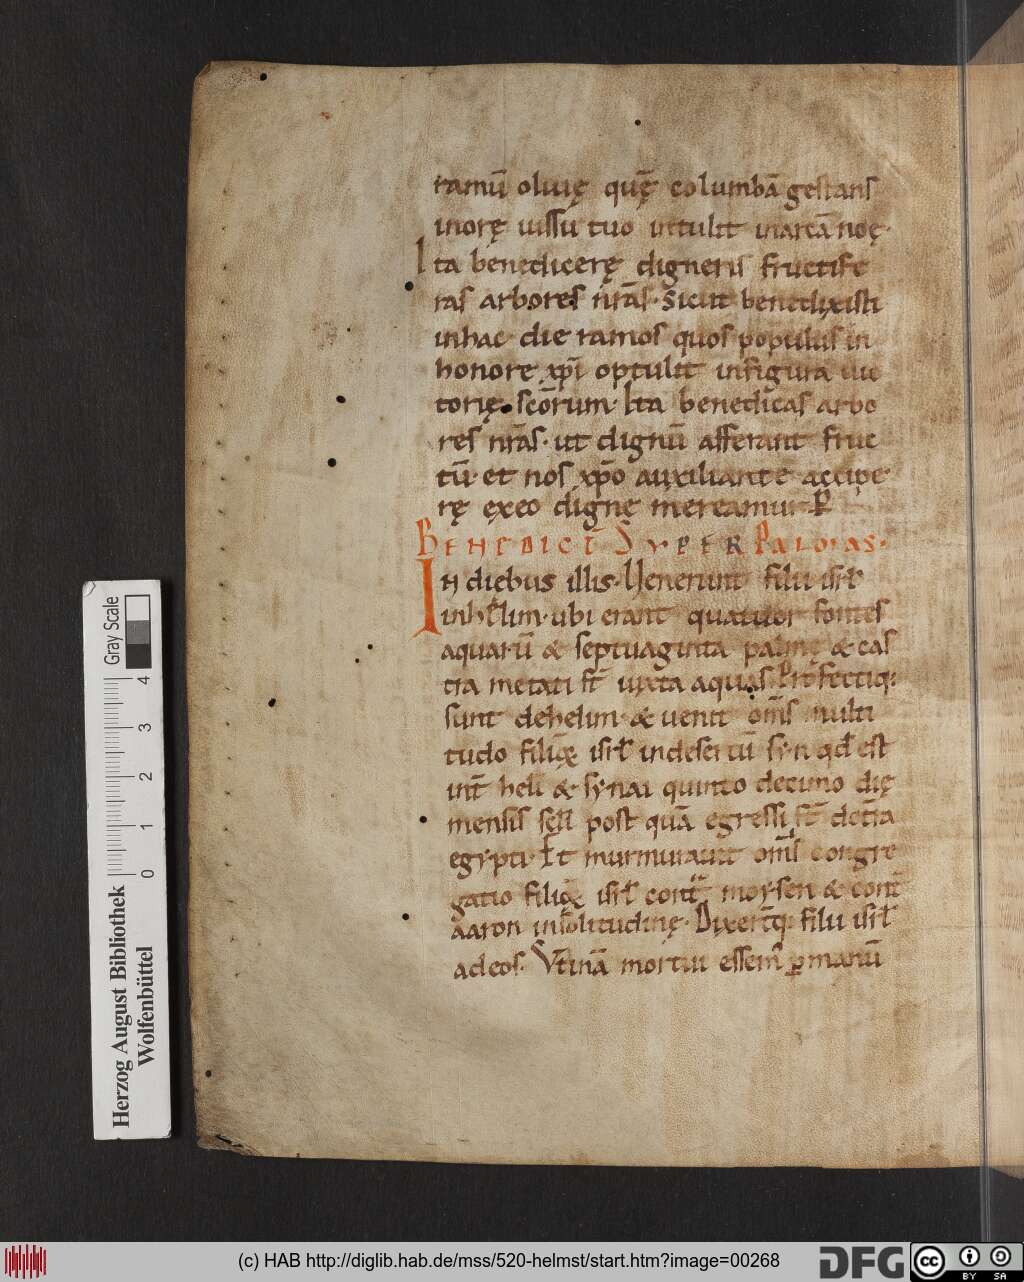 ramū oliuię quę̄ columbā gestans
inorę iussu tuo intulit inarcā noę·
Ita benedicerę digneris fructife
ras arbores nr̄as· sicut benedixisti
inhac die ramos quos populus in
honore xp̄i optulit infigura uic
torię sc̄orum· Ita benedicas arbo
res nr̄as· ut dignū afferant fruc
tū· et nos xp̄o auxiliante accipe
rę ęxeo dignę mereamur· P̄
BENEDICT̄ SVPER PALMAS·
In diebus illis· Uenerunt filii isrl̄
inhel̄im· ubi erant quatuor fontes
aquarū & septuaginta palmę & cas
tra metati st̄ iuxta aquas· Prt̄fectiq:
sunt dehelim· & uenit om̄s multi
tudo filioꝝ isrl̄ indesertū syn qd̄ est
int̄ heli & synai quinto decimo dię
mensis scd̄i post quā egressi st̄ det̄ra
egypti· Et murmurauit om̄s congre
gatio filioꝝ isrl̄ cont̄ moysen & cont̄
aaron insolitudinę· Dixert̄q: filii isrl̄
adeos· Vtinā mortui essem̄ ꝑmanū
Gray Scale
0 1 2 3 4
Herzog August Bibliothek
Wolfenbüttel
(c) HAB http://diglib.hab.de/mss/520-helmst/start.htm?image=00268
DFG
cc BY SA